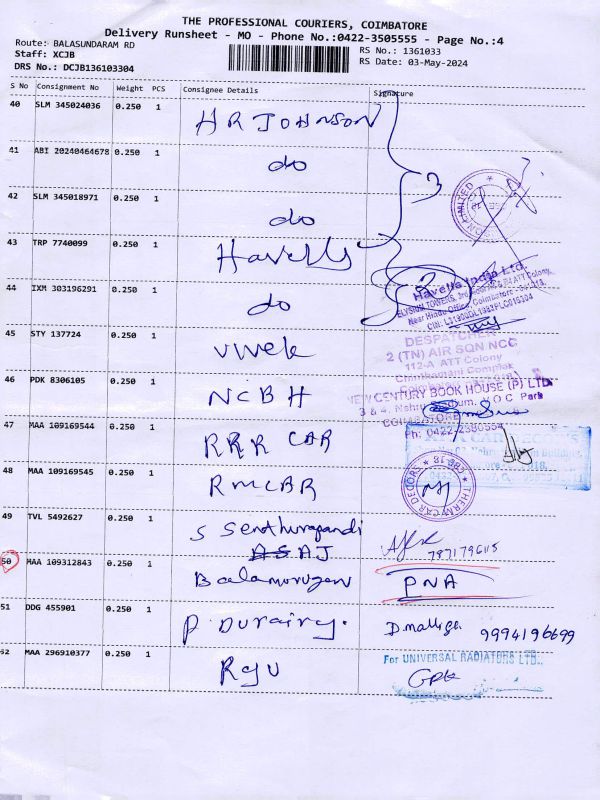 THE PROFESSIONAL COURIERS, COIMBATORE
Delivery Runsheet - MO - Phone No.:0422-3505555 - Page No.:4
Route: BALASUNDARAM RD
Staff: XCJB
DRS No.: DCJB136103304
RS No.: 1361033
RS Date: 03-May-2024
S No Consignment No Weight PCS Consignee Details Signature
40 SLM 345024036 0.250 1 HR JOHNSON
41 ABI 20240464678 0.250 1 do
3
42 SLM 345018971 0.250 1 do
43 TRP 7740099 0.250 1 Havells
44 IXM 303196291 0.250 1 do
2
Havells India Ltd.
ELYSIUM TOWERS, ATT Colony,
Near Hindu Office, Coimbatore
45 STY 137724 0.250 1 vivek
DESPATCHED
2 (TN) AIR SQN NCC
112-A ATT Colony
Chinthamani Complex
46 PDK 8306105 0.250 1 NCBH
NEW CENTURY BOOK HOUSE (P) LTD
3 & 4, Nehru Stadium, V.O.C Park
COIMBATORE
Ph: 0422-2380554
47 MAA 109169544 0.250 1 RRR CAR
CAR DECORS
48 MAA 109169545 0.250 1 RMCBR
CAR DECORS
49 TVL 5492627 0.250 1 S Senthurapandi
50 MAA 109312843 0.250 1 Balamurugan
PNA
51 DDG 455901 0.250 1 P. Durairy. D.malliga 9994196699
52 MAA 296910377 0.250 1 Raju
For UNIVERSAL RADIATORS LTD.,